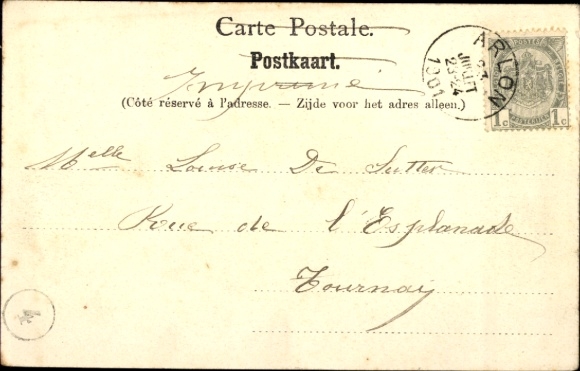 Carte Postale.
Postkaart.
Imprimé
(Côté réservé à l'adresse. — Zijde voor het adres alleen.)
ARLON
JUILT
1901
1c 1c
Melle Louise De Sutter
Rue de l'Esplanade
Tournay